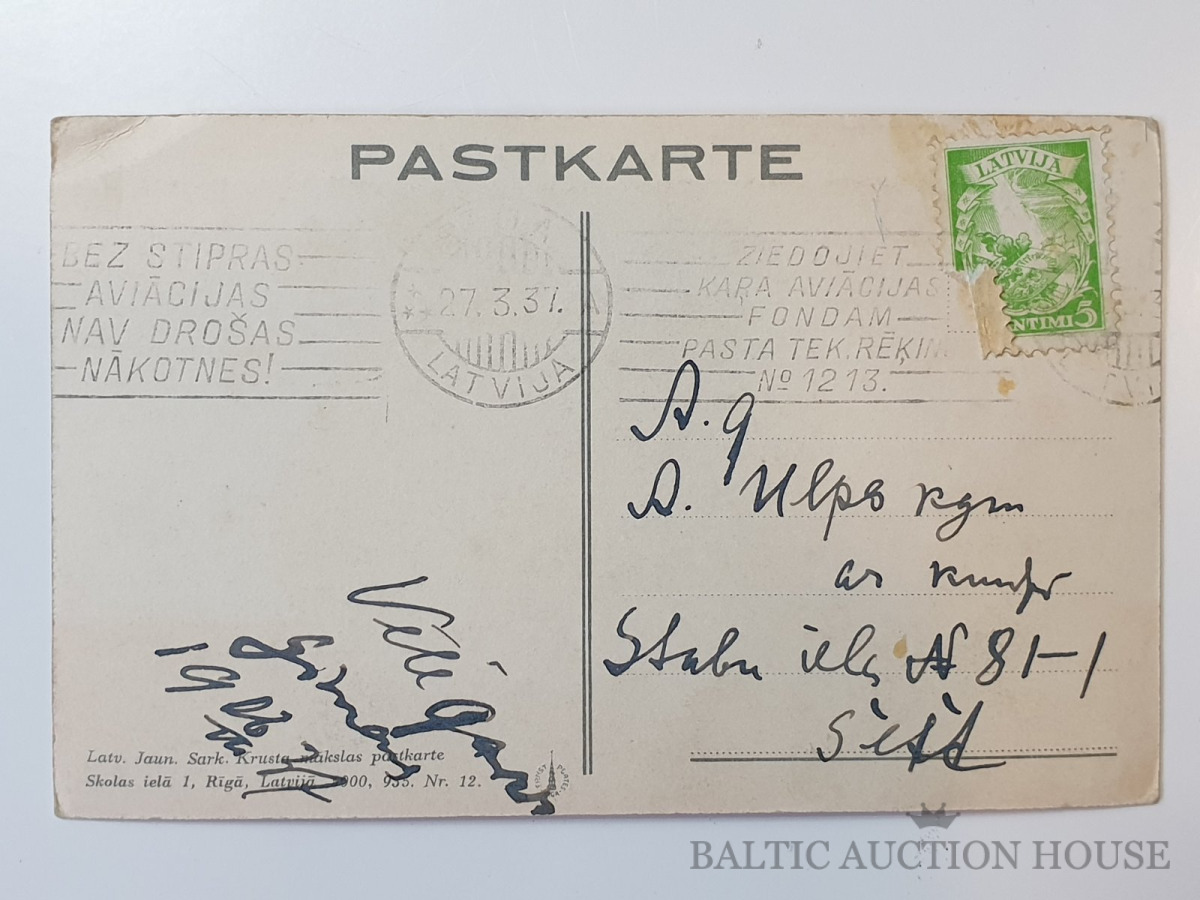 PASTKARTE
BEZ STIPRAS
AVIĀCIJAS
NAV DROŠAS
NĀKOTNES!
27.3.37.
LATVIJA
ZIEDOJIET
KARA AVIĀCIJAS
FONDAM
PASTA TEK. RĒĶIN
№ 1213.
LATVIJA
NTIMI 5
A. g
A. Ulps kgm
ar
Stabu iela № 81-1
šeit
Latv. Jaun. Sark. Krusta mākslas pastkarte
Skolas ielā 1, Rīgā, Latvijā 000, 935. Nr. 12.
BALTIC AUCTION HOUSE